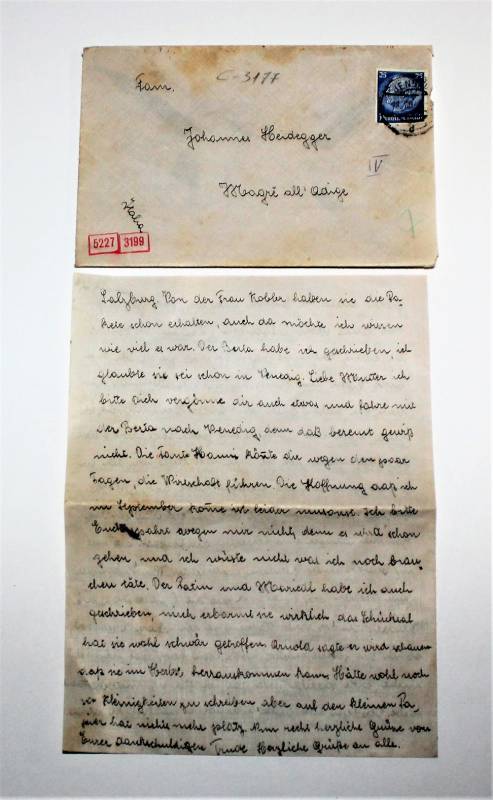 Fam.
C-3177
25 25
Johannes Heidegger
IV
Magré all' Adige
Italia
5227 3199
Salzburg. Von der Frau Kobler haben sie die Pa-
kete schon erhalten, auch da möchte ich wissen
wie viel es war. Der Berta habe ich geschrieben, ich
glaubte sie sei schon in Venedig. Liebe Mutter ich
bitte Dich vergönne dir auch etwas und fahre mit
der Berta nach Venedig, denn daß bereust gewiß
nicht. Die Tante Hanni könte die wegen den paar
Tagen, die Wirtschaft führen. Die Hoffnung daß ich
im September kome ist leider umsonst. Ich bitte
wegen mir nichts, denn es wird schon
gehen, und ich wüste nicht was ich noch brau
chen täte. Der Patin und Marical habe ich auch
geschrieben, mich erbarmt sie wirklich, das Schicksal
hat sie wohl schwär getroffen. Arnold sagte er wird schauen
daß sie im Herbst herrauskommen kann. Hätte wohl noch
so kleinigkeiten zu schreiben aber auf den kleinen Pa-
pier hat nichts mehr platz. Nun recht herzliche Grüße von
Eurer dankschuldigen Trude Herzliche Grüße an alle.